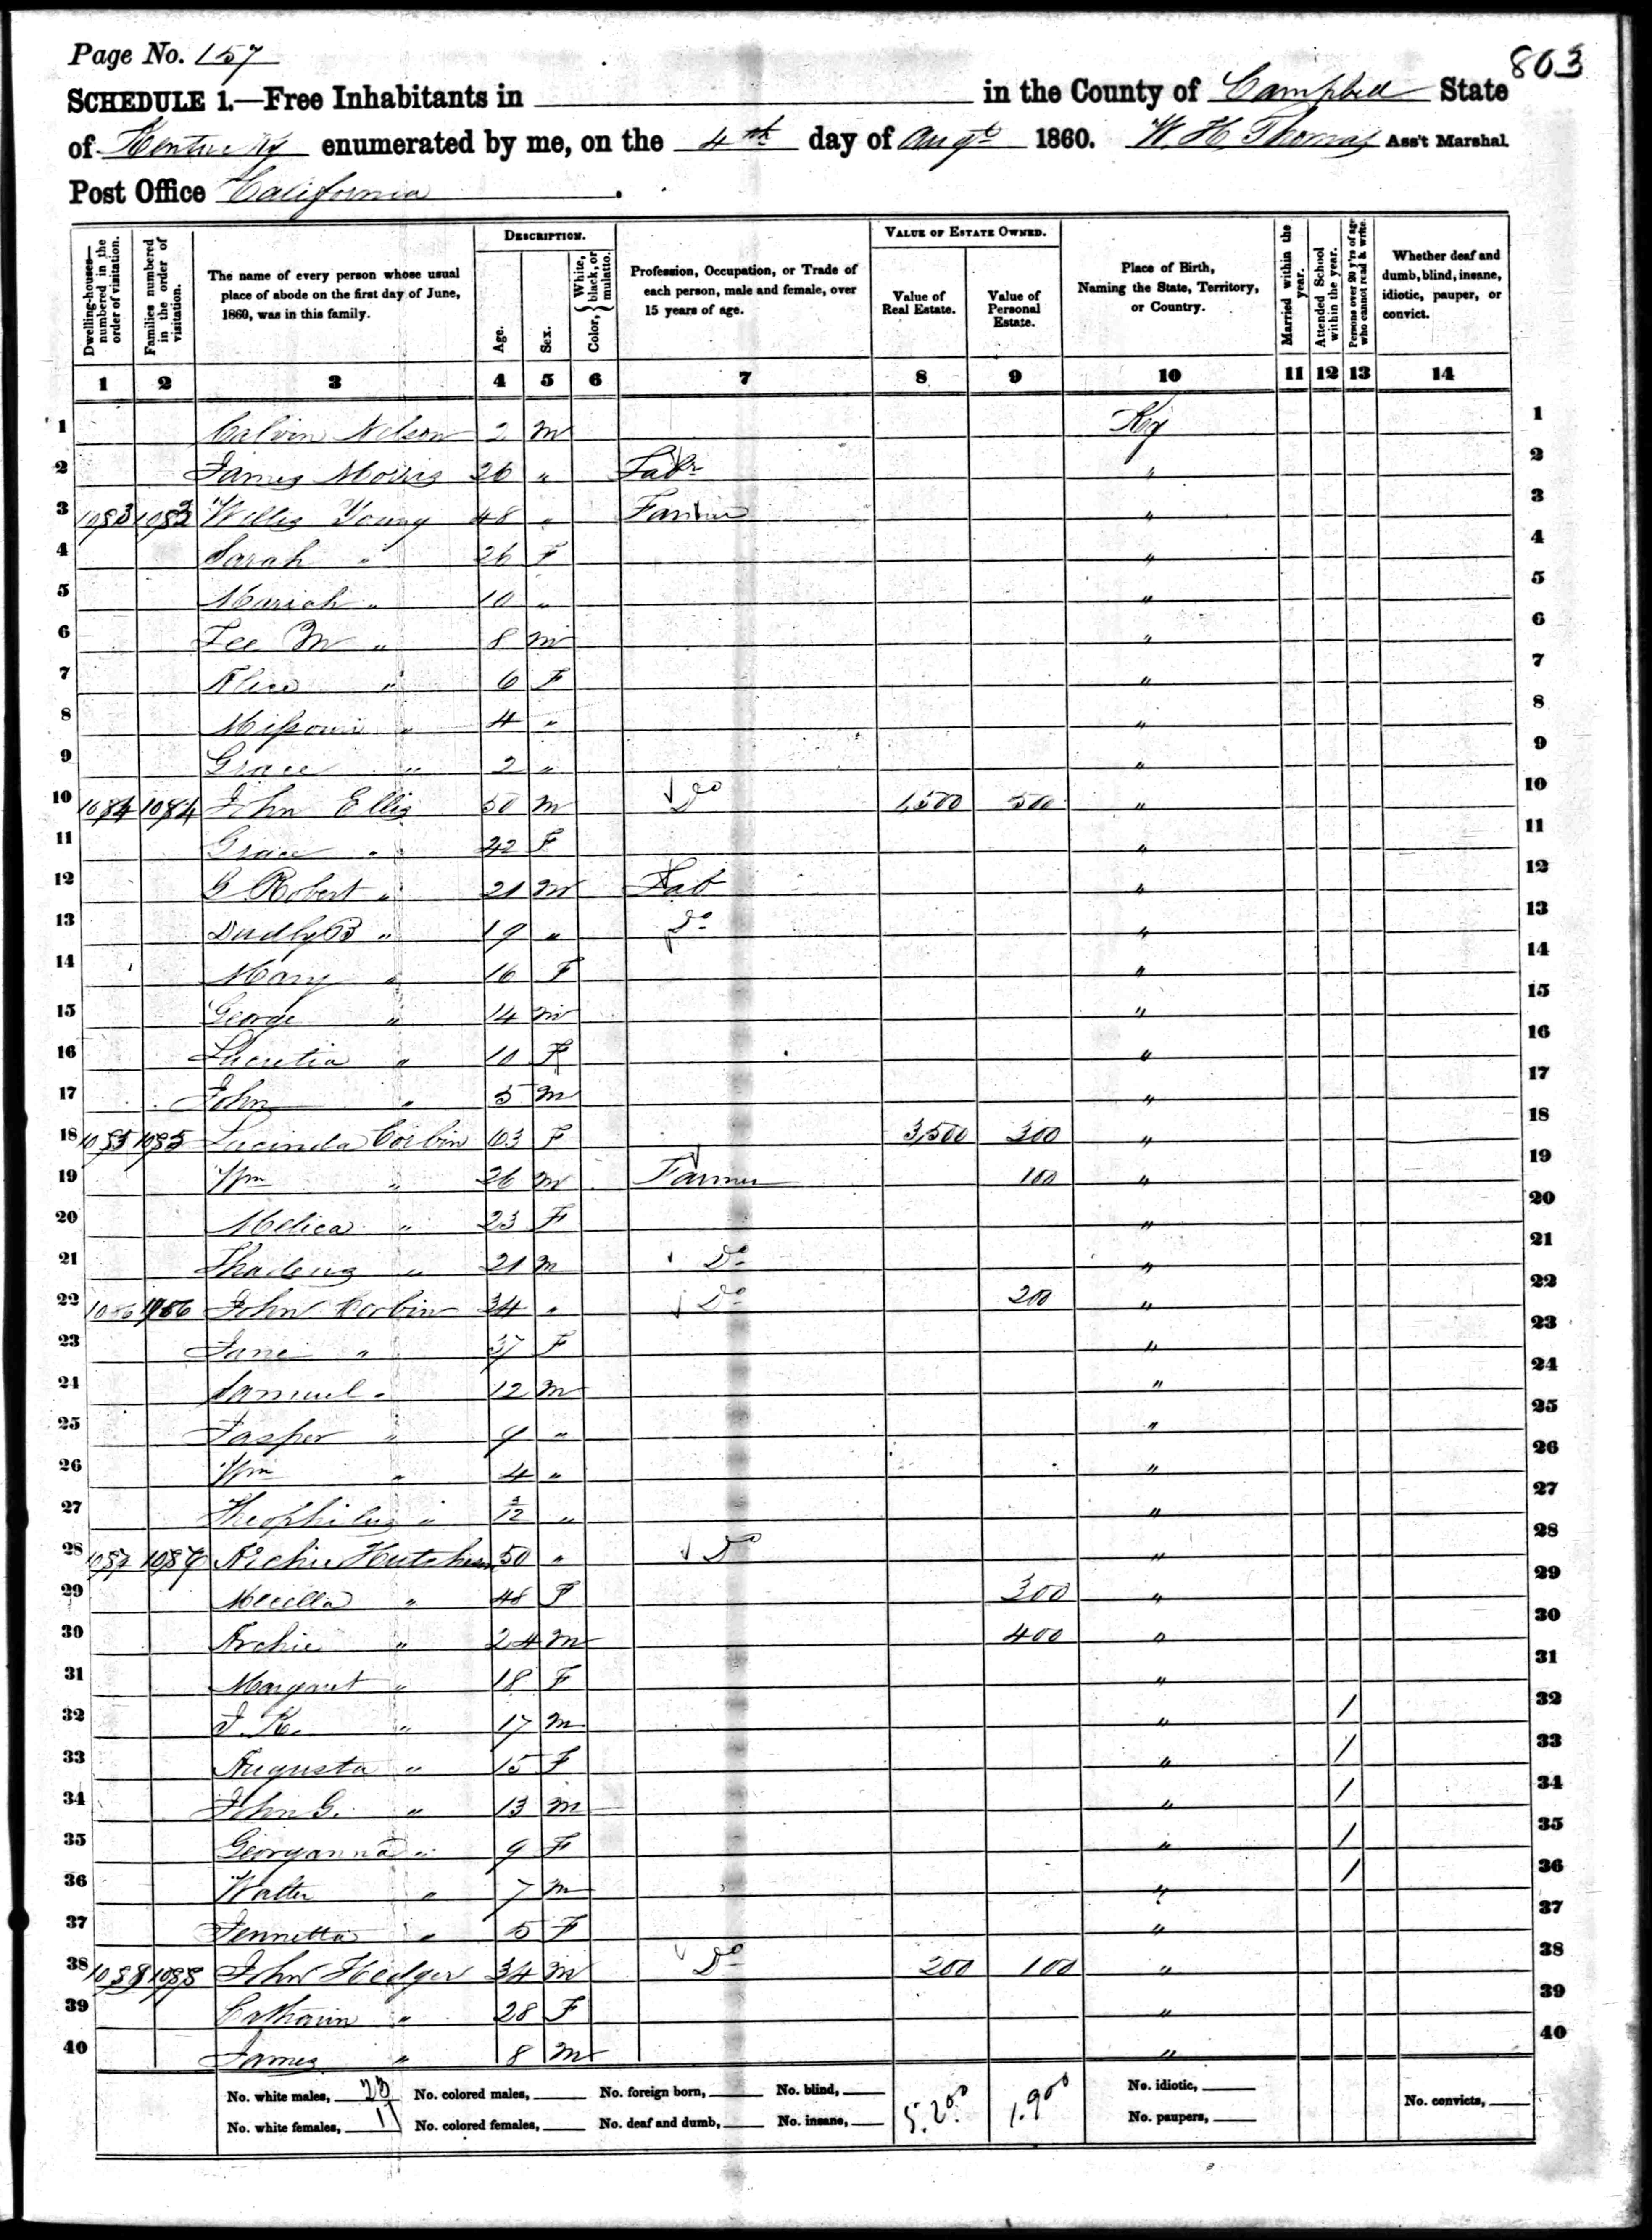 Page No. 157
803
SCHEDULE 1.—Free Inhabitants in in the County of Campbell State
of Kentucky enumerated by me, on the 4th day of Augt 1860. W. H. Thomas Ass't Marshal
Post Office California
Dwelling-houses—numbered in the order of visitation.
Families numbered in the order of visitation.
The name of every person whose usual place of abode on the first day of June, 1860, was in this family.
DESCRIPTION.
Age.
Sex.
Color, { White, black, or mulatto.
Profession, Occupation, or Trade of each person, male and female, over 15 years of age.
VALUE OF ESTATE OWNED.
Value of Real Estate.
Value of Personal Estate.
Place of Birth, Naming the State, Territory, or Country.
Married within the year.
Attended School within the year.
Persons over 20 y'rs of age who cannot read & write.
Whether deaf and dumb, blind, insane, idiotic, pauper, or convict.
1 2 3 4 5 6 7 8 9 10 11 12 13 14
1 Calvin Nelson 2 m Ky 1
2 James Morris 26 " Labr " 2
3 1083 1083 Willis Young 48 " Farmer " 3
4 Sarah " 26 F " 4
5 Mariah " 10 " " 5
6 Lee M " 8 m " 6
7 Alice " 6 F " 7
8 Missouri " 4 " " 8
9 Grace " 2 " " 9
10 1084 1084 John Ellis 50 m Do 1,500 500 " 10
11 Grace " 42 F " 11
12 G Robert " 21 m Lab " 12
13 Dudly B " 19 " Do " 13
14 Mary " 16 F " 14
15 George " 14 m " 15
16 Lucretia " 10 F " 16
17 John " 5 m " 17
18 1085 1085 Lucinda Corbin 63 F 3,500 300 " 18
19 Wm " 26 m Farmer 100 " 19
20 Melica " 23 F " 20
21 Thadeus " 21 m Do " 21
22 1086 1086 John Corbin 34 " Do 200 " 22
23 Jane " 37 F " 23
24 Samuel " 12 m " 24
25 Jasper " 9 " " 25
26 Wm " 4 " " 26
27 Theophilus " /12 " " 27
28 1087 1087 Archie Hutchison 50 " Do " 28
29 " 48 F 300 " 29
30 Archie " 24 m 400 " 30
31 Margaret " 18 F " 31
32 J. K. " 17 m " / 32
33 Augusta " 15 F " / 33
34 John G. " 13 m " / 34
35 Georganna " 9 F " / 35
36 Walter " 7 m " / 36
37 Jennetta " 5 F " 37
38 1088 1088 John Hedger 34 m Do 200 100 " 38
39 Catharin " 28 F " 39
40 James " 8 m " 40
No. white males, 23 No. colored males, No. foreign born, No. blind, 5.200 1.900 No. idiotic,
No. white females, 17 No. colored females, No. deaf and dumb, No. insane, No. paupers, No. convicts,